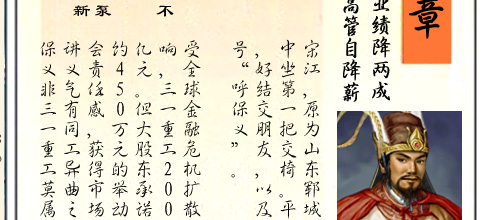 章
业绩降两成
高管自降薪
不
新泵
宋江，原为山东郓城
中坐第一把交椅。平
，好结交朋友，以及
号“呼保义”。
受全球金融危机扩散
响，三一重工200
亿元。但大股东承诺
约450万元的举动
会责任感，获得市场
讲义气有同工异曲之
保义非三一重工莫属